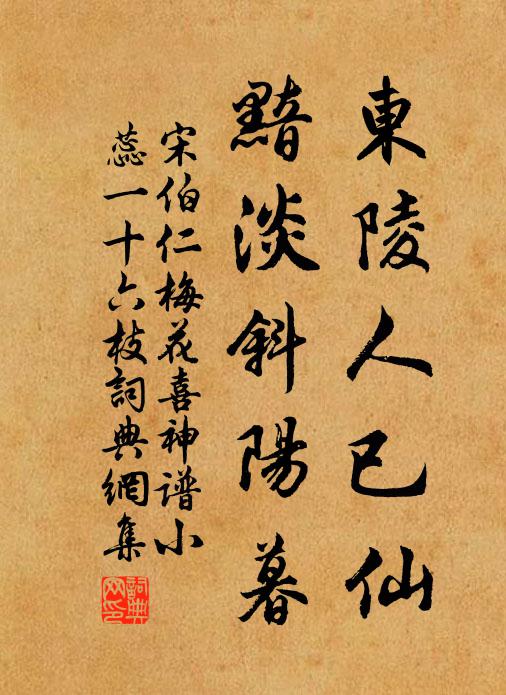 東陵人已仙
黯淡斜陽暮
宋伯仁梅花喜神谱小
蕊一十六枝詞典網集
詞典
网印